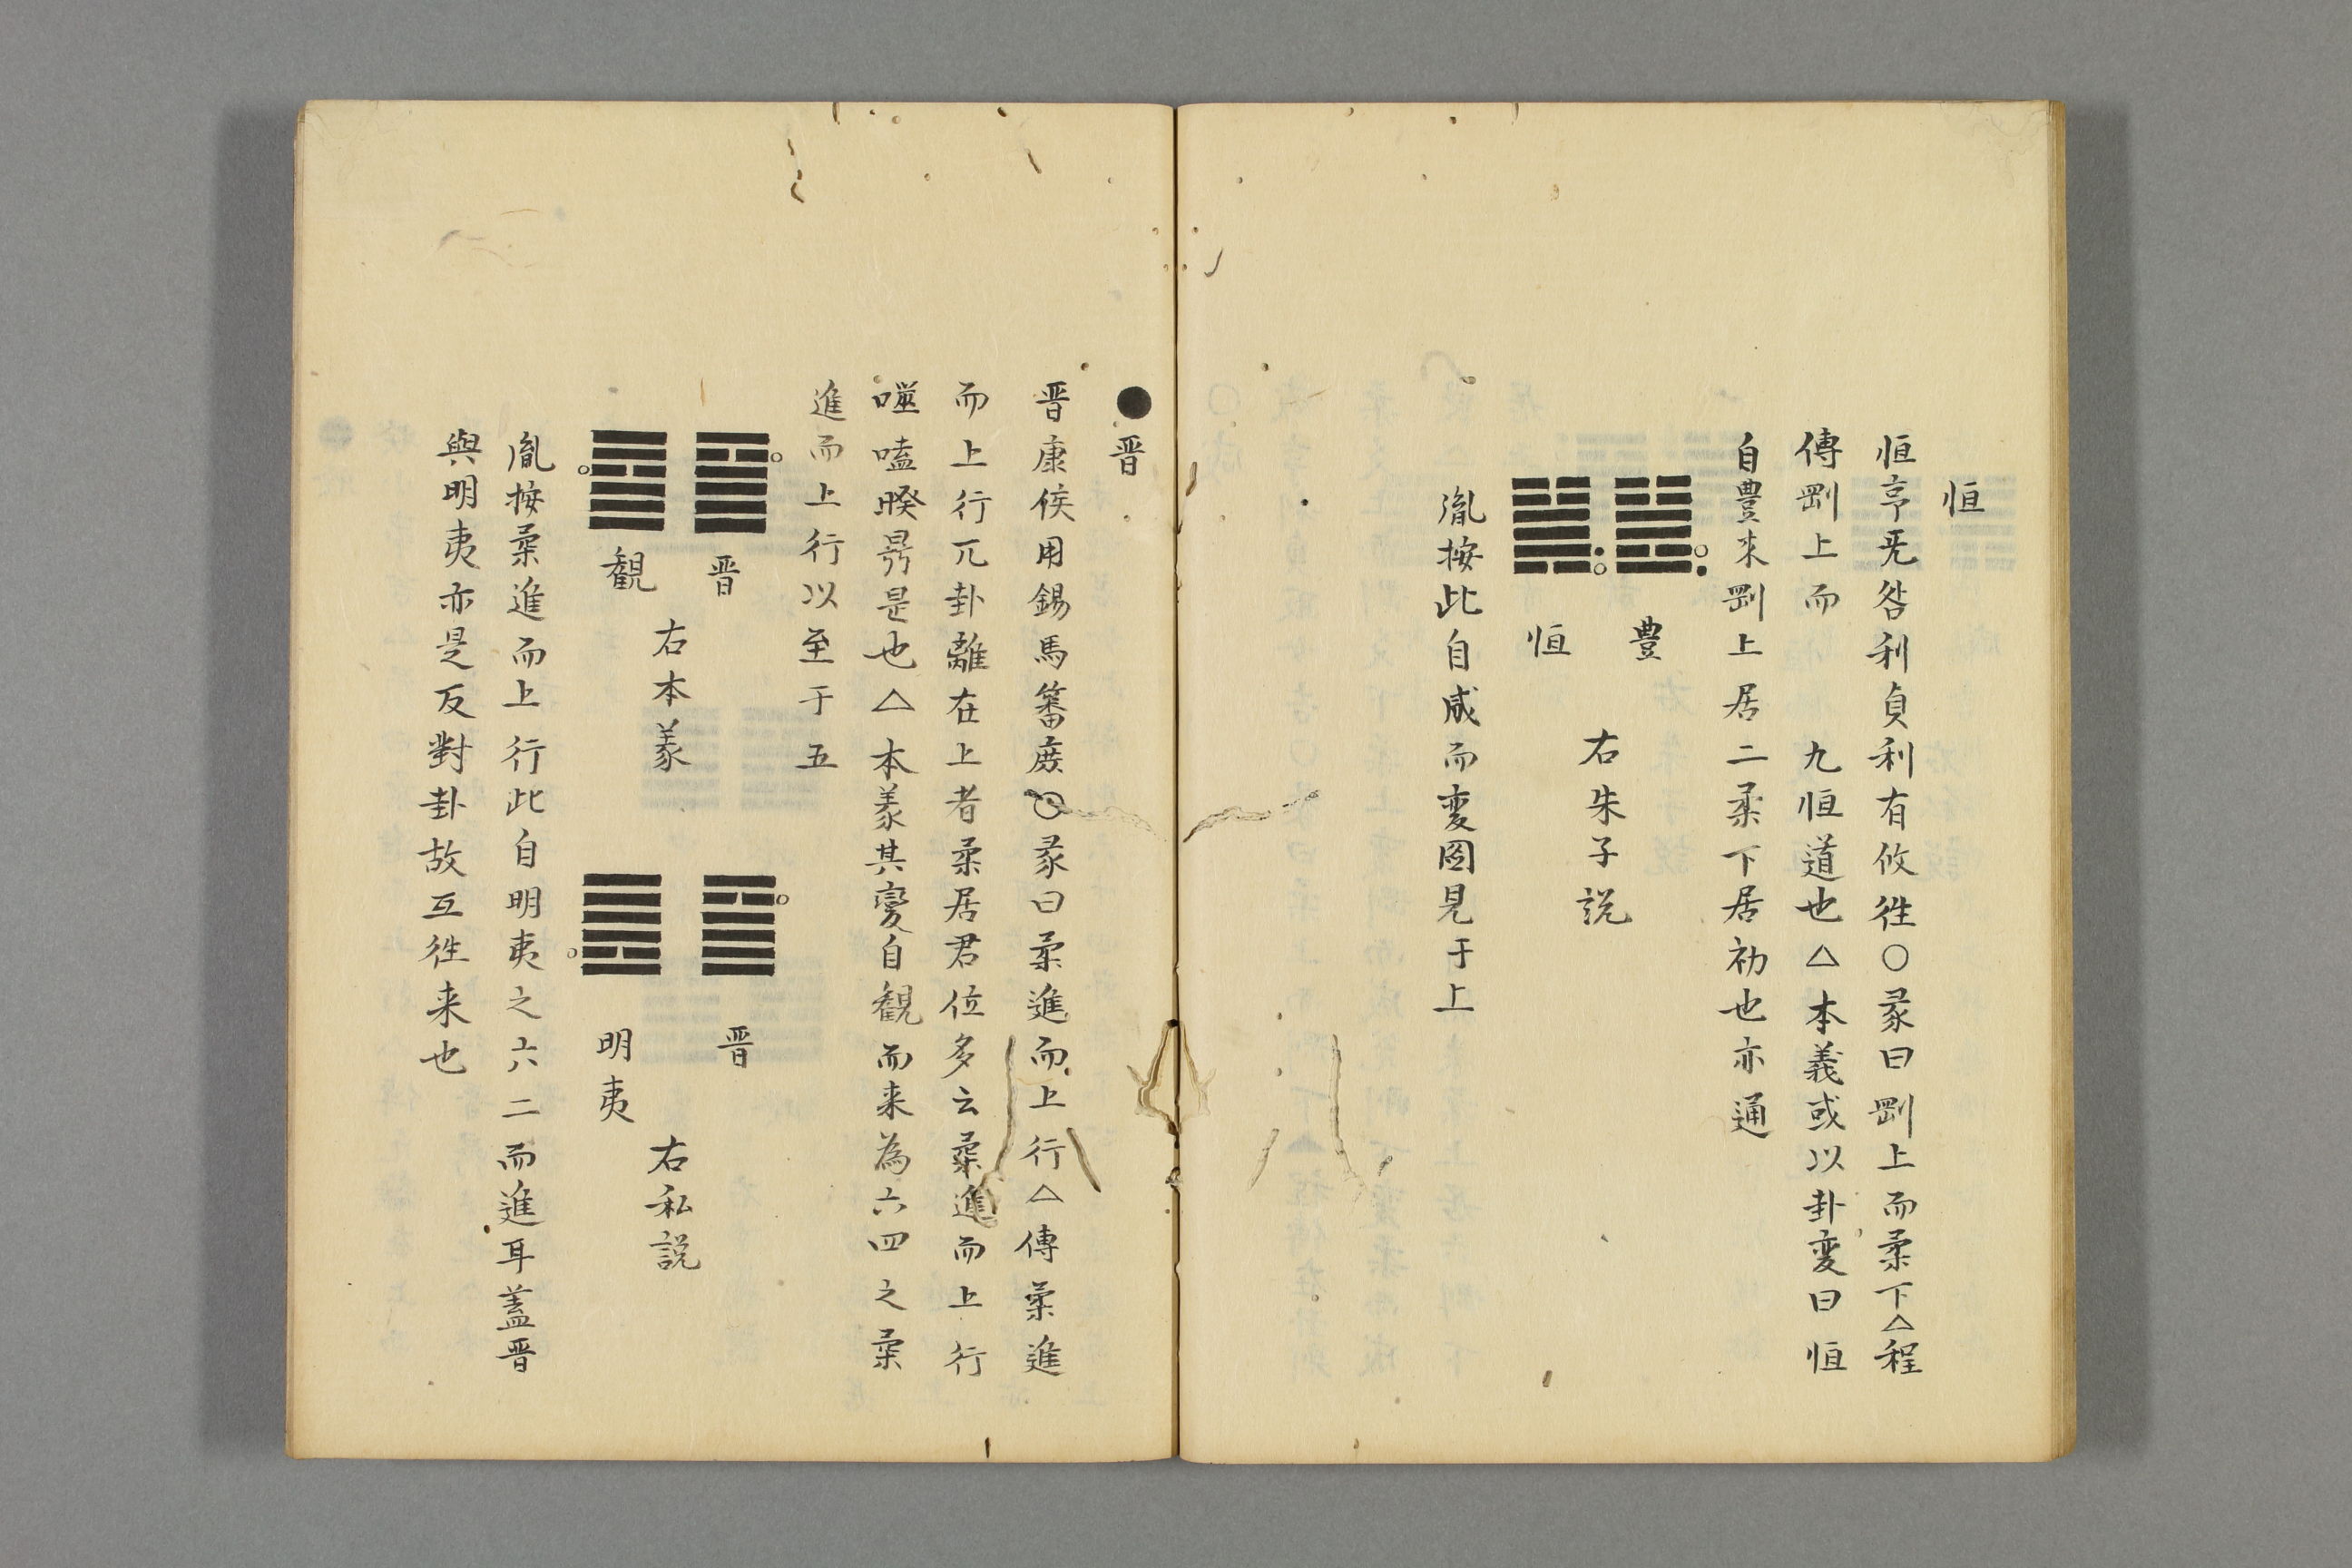 恒
恒亨旡咎利貞利有攸往○彖曰剛上而柔下△程
傳剛上而　九恒道也△本義或以卦変曰恒
自豊来剛上居二柔下居初也亦通
豊
恒
右朱子説
胤按此自咸而変図見于上
●晋
晋康侯用錫馬蕃庶○彖曰柔進而上行△傳柔進
而上行兀卦離在上者柔居君位多云柔進而上行
噬嗑睽鼎是也△本義其變自観而来為六四之柔
進而上行以至于五
晋
観
右本義
晋
明夷
右私説
胤按柔進而上行此自明夷之六二而進耳蓋晋
與明夷亦是反對卦故互往来也